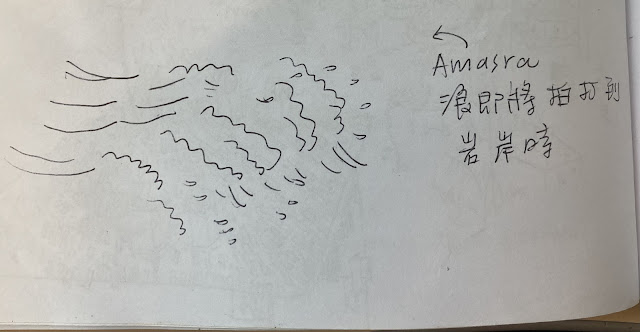 Amasra
浪即將拍打到
岩岸時